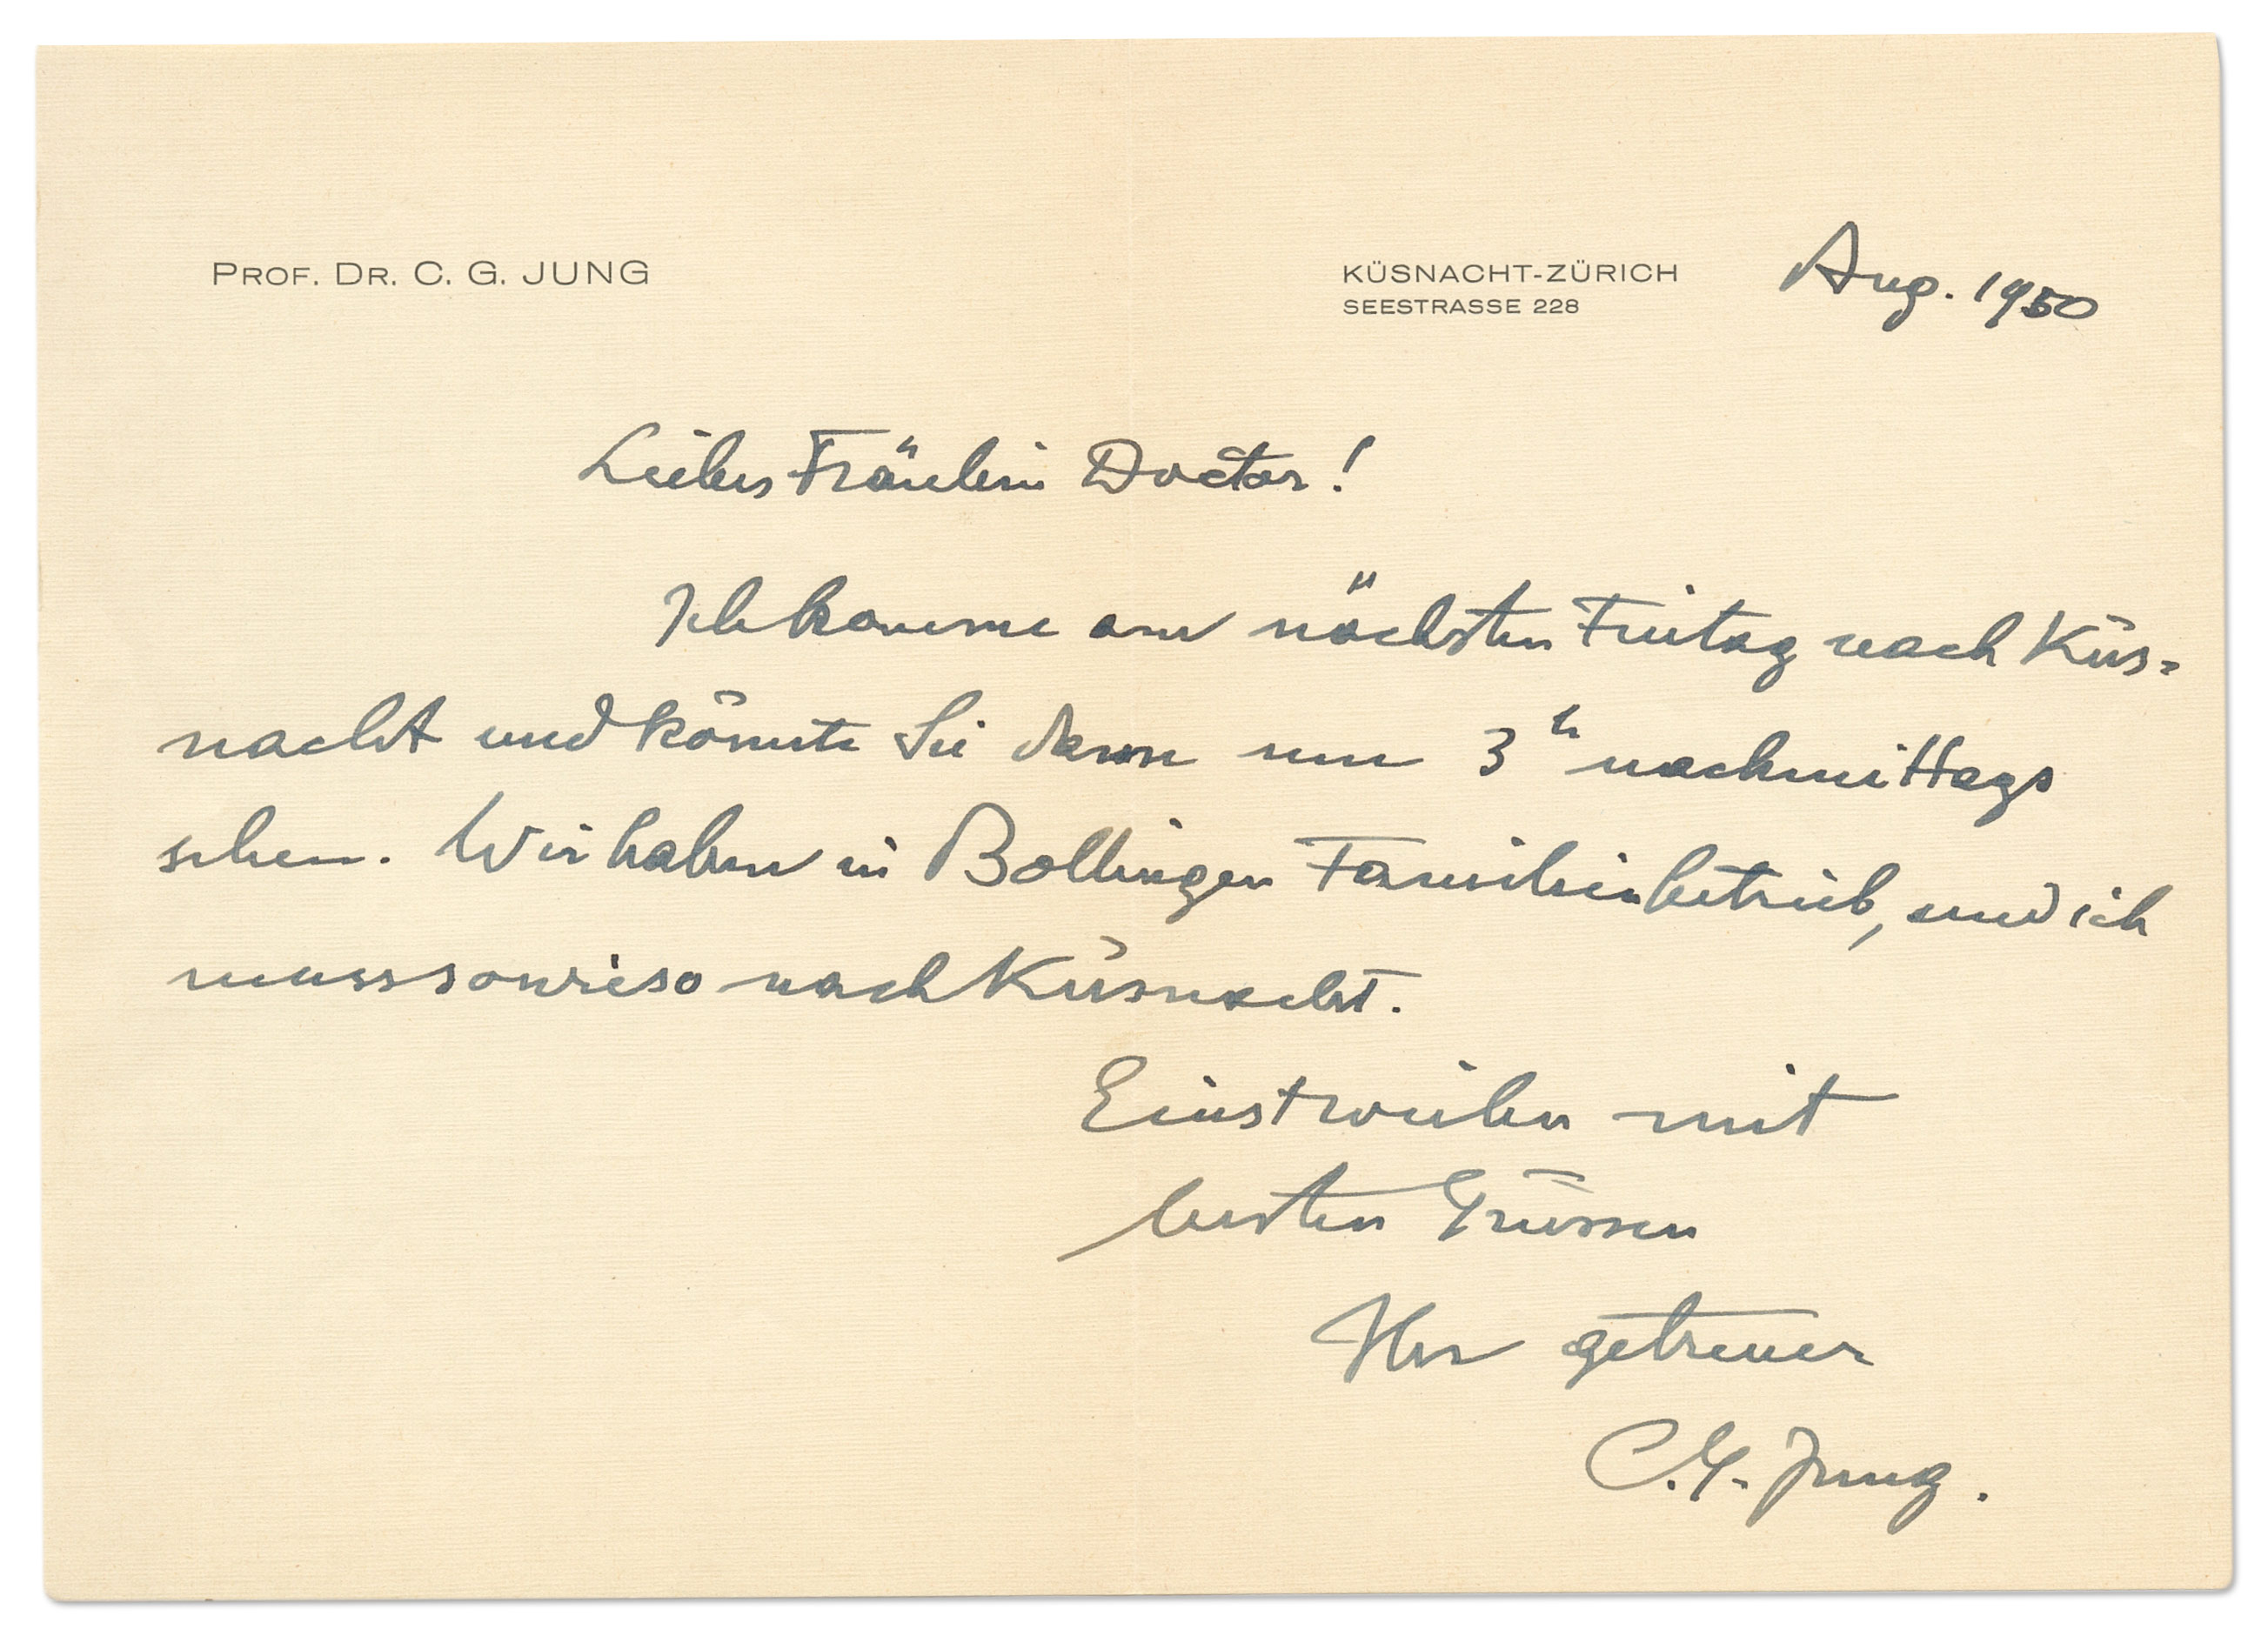 PROF. DR. C. G. JUNG
KÜSNACHT-ZÜRICH
SEESTRASSE 228
Aug. 1950
Liebes Fräulein Doctor!
Ich komme am nächsten Freitag nach Küs=
nacht und könnte Sie dann um 3h nachmittags
sehen. Wir haben in Bollingen Familienbetrieb, und ich
muss sowieso nach Küsnacht.
Einstweilen mit
besten Grüssen
Ihr getreuer
C. G. Jung.